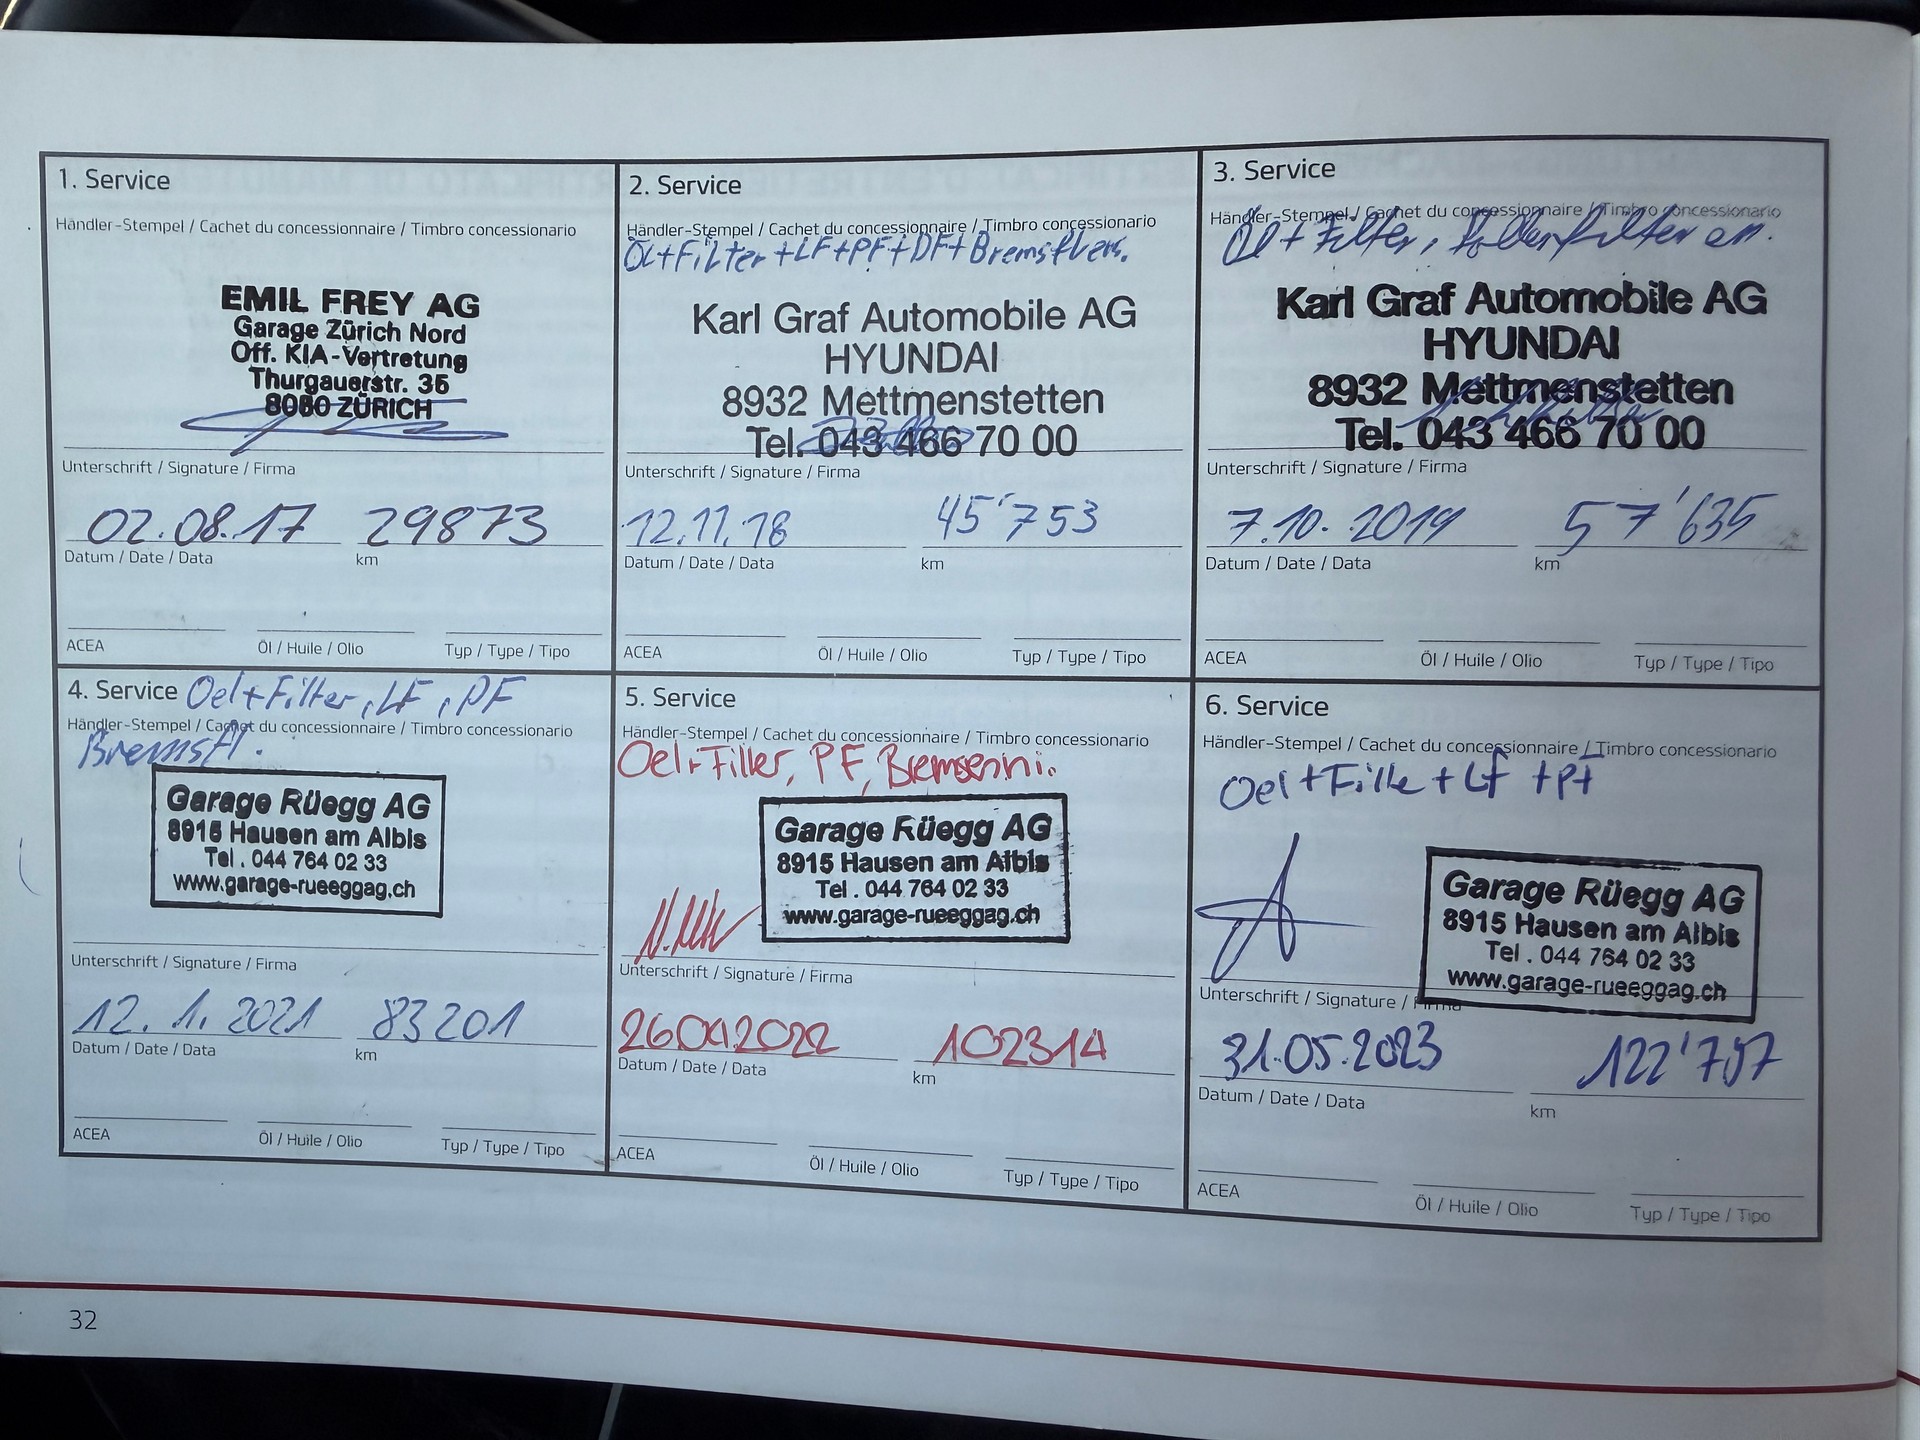 1. Service
Händler-Stempel / Cachet du concessionnaire / Timbro concessionario
EMIL FREY AG
Garage Zürich Nord
Off. KIA-Vertretung
Thurgauerstr. 35
8050 ZÜRICH
Unterschrift / Signature / Firma
02.08.17 29873
Datum / Date / Data km
ACEA Öl / Huile / Olio Typ / Type / Tipo
2. Service
Händler-Stempel / Cachet du concessionnaire / Timbro concessionario
Öl+Filter+LF+PF+DF+Bremsfl
Karl Graf Automobile AG
HYUNDAI
8932 Mettmenstetten
Tel. 043 466 70 00
Unterschrift / Signature / Firma
12.11.18 45'753
Datum / Date / Data km
ACEA Öl / Huile / Olio Typ / Type / Tipo
3. Service
Händler-Stempel / Cachet du concessionnaire / Timbro concessionario
Öl + Filter, Pollenfilter ern.
Karl Graf Automobile AG
HYUNDAI
8932 Mettmenstetten
Tel. 043 466 70 00
Unterschrift / Signature / Firma
7.10.2019 57'635
Datum / Date / Data km
ACEA Öl / Huile / Olio Typ / Type / Tipo
4. Service Oel+Filter, LF, PF
Händler-Stempel / Cachet du concessionnaire / Timbro concessionario
Bremsfl.
Garage Rüegg AG
8915 Hausen am Albis
Tel. 044 764 02 33
www.garage-rueeggag.ch
Unterschrift / Signature / Firma
12.1.2021 83201
Datum / Date / Data km
ACEA Öl / Huile / Olio Typ / Type / Tipo
5. Service
Händler-Stempel / Cachet du concessionnaire / Timbro concessionario
Oel+Filter, PF,
Garage Rüegg AG
8915 Hausen am Albis
Tel. 044 764 02 33
www.garage-rueeggag.ch
Unterschrift / Signature / Firma
102314
Datum / Date / Data km
ACEA Öl / Huile / Olio Typ / Type / Tipo
6. Service
Händler-Stempel / Cachet du concessionnaire / Timbro concessionario
Oel+Filte+LF+PF
Garage Rüegg AG
8915 Hausen am Albis
Tel. 044 764 02 33
www.garage-rueeggag.ch
Unterschrift / Signature / Firma
31.05.2023 122'757
Datum / Date / Data km
ACEA Öl / Huile / Olio Typ / Type / Tipo
32